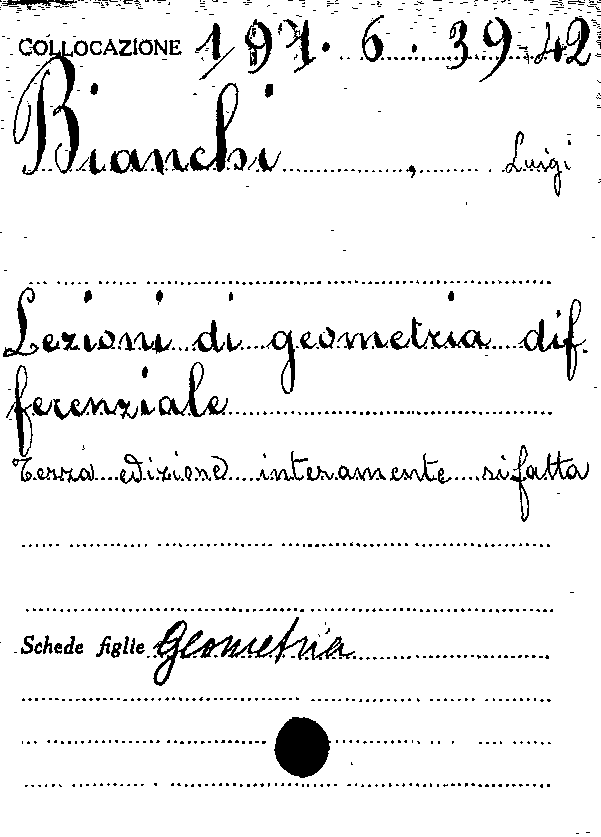 COLLOCAZIONE 197. 6. 39-42
Bianchi, Luigi
Lezioni di geometria dif-
ferenziale
Terza edizione interamente rifatta
Schede figlie Geometria